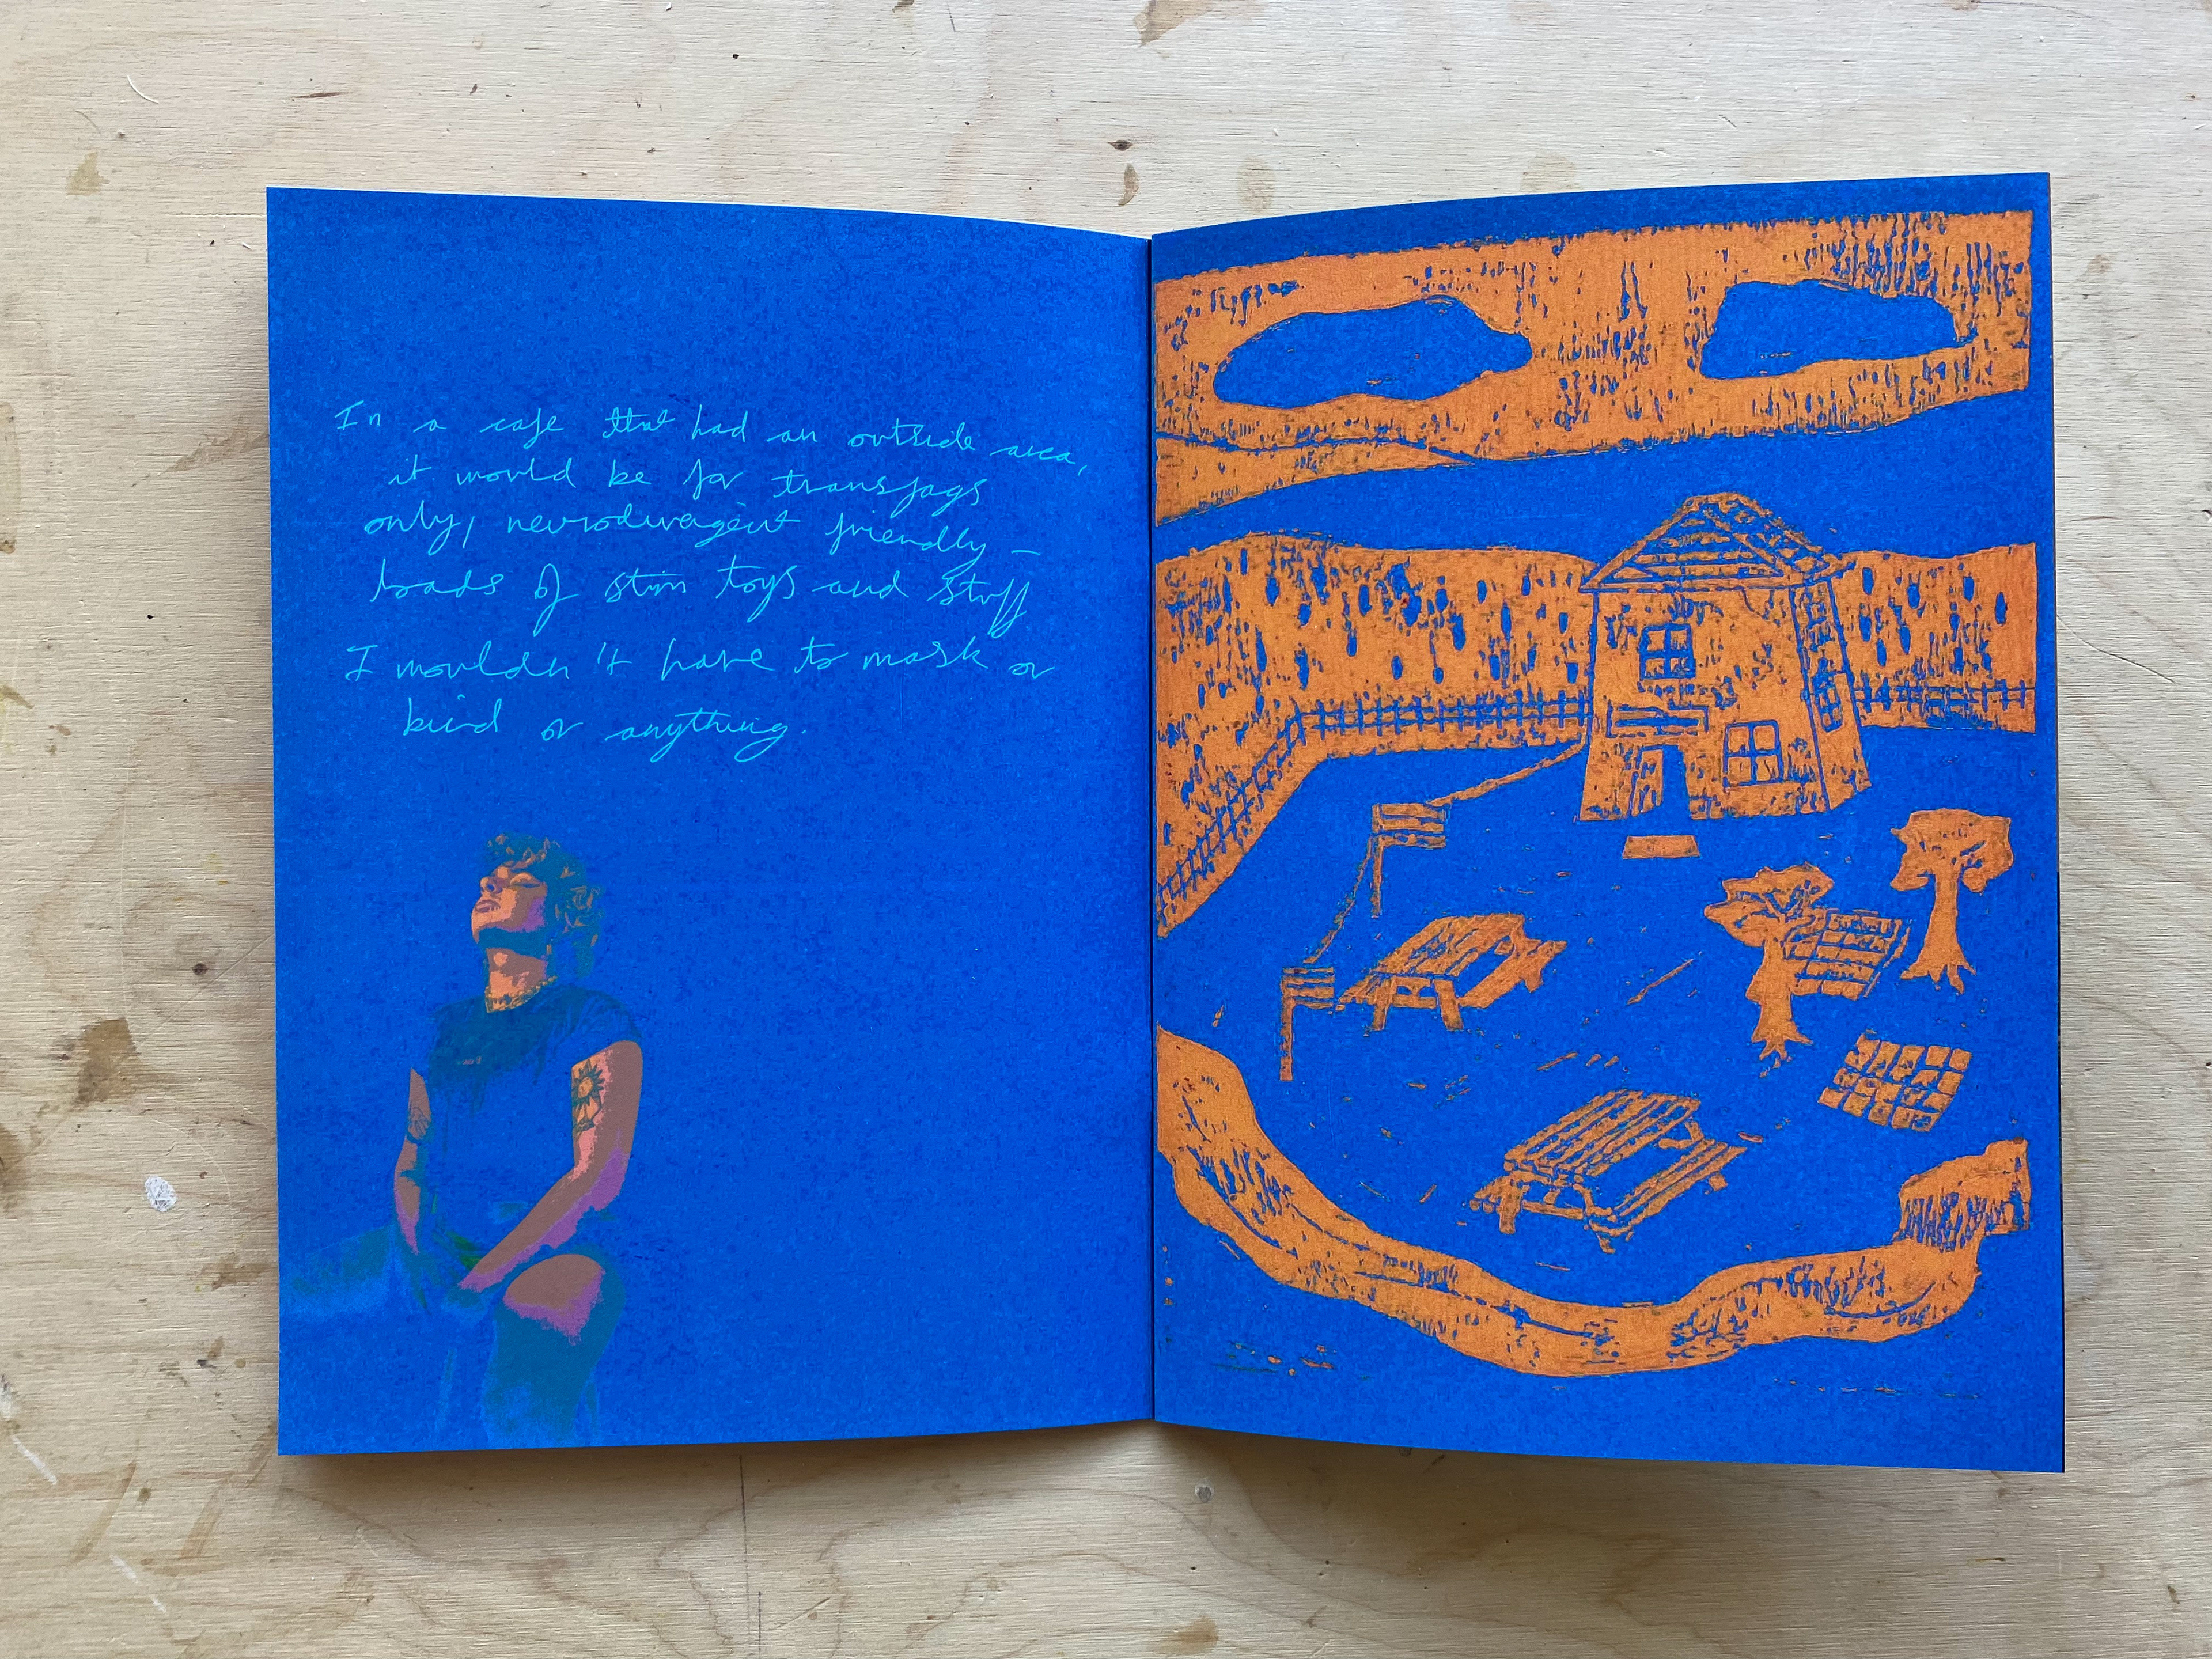 In a cafe that had an outside area,
it would be for transfags
only, neurodivergent friendly –
loads of stim toys and stuff
I wouldn't have to mask or
bind or anything.